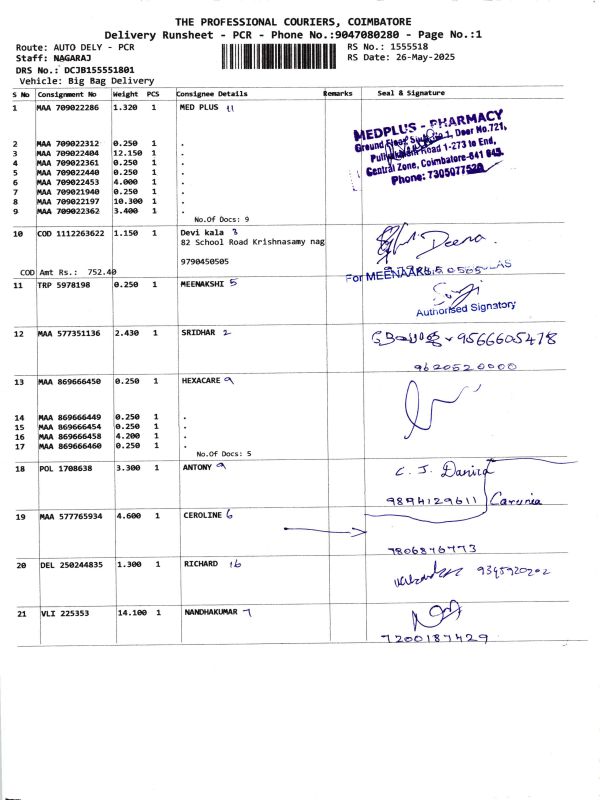 THE PROFESSIONAL COURIERS, COIMBATORE
Delivery Runsheet - PCR - Phone No.:9047080280 - Page No.:1
Route: AUTO DELY - PCR RS No.: 1555518
Staff: NAGARAJ RS Date: 26-May-2025
DRS No.: DCJB155551801
Vehicle: Big Bag Delivery
S No Consignment No Weight PCS Consignee Details Remarks Seal & Signature
1 MAA 709022286 1.320 1 MED PLUS 11
MEDPLUS - PHARMACY
Ground Floor, Door No.721,
Road 1-273 to End,
Central Zone, Coimbatore-641
Phone: 7305077520
2 MAA 709022312 0.250 1 .
3 MAA 709022404 12.150 1 .
4 MAA 709022361 0.250 1 .
5 MAA 709022440 0.250 1 .
6 MAA 709022453 4.000 1 .
7 MAA 709021940 0.250 1 .
8 MAA 709022197 10.300 1 .
9 MAA 709022362 3.400 1 .
No.Of Docs: 9
10 COD 1112263622 1.150 1 Devi kala 3 Deena.
82 School Road Krishnasamy nag
9790450505
COD Amt Rs.: 752.40
For
11 TRP 5978198 0.250 1 MEENAKSHI 5
Authorised Signatory
12 MAA 577351136 2.430 1 SRIDHAR 2 9566605478
9620520000
13 MAA 869666450 0.250 1 HEXACARE 9
14 MAA 869666449 0.250 1 .
15 MAA 869666454 0.250 1 .
16 MAA 869666458 4.200 1 .
17 MAA 869666460 0.250 1 .
No.Of Docs: 5
18 POL 1708638 3.300 1 ANTONY 9 C. J.
9894129611
19 MAA 577765934 4.600 1 CEROLINE 6
7806876773
20 DEL 250244835 1.300 1 RICHARD 16 9345920202
21 VLI 225353 14.100 1 NANDHAKUMAR 7
7200187429